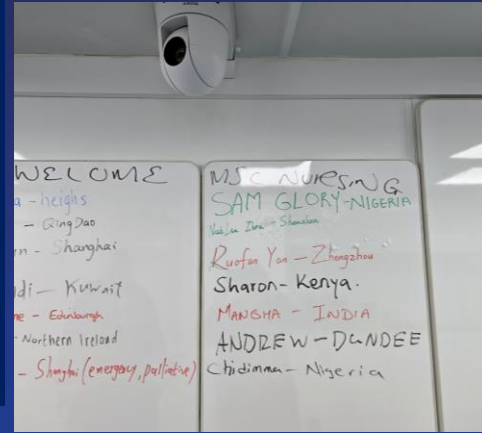 WELCOME
a - heighs
- QingDao
n - Shanghai
di - Kuwait
ne - Edunburgh
- Northern Ireland
- Shanghai (emergency, palliative)
MSC NURSING
SAM GLORY - NIGERIA
Shenzhen
Ruofan Yan - Zhengzhou
Sharon - Kenya.
MANGHA - INDIA
ANDREW - DUNDEE
Chidimma - Nigeria